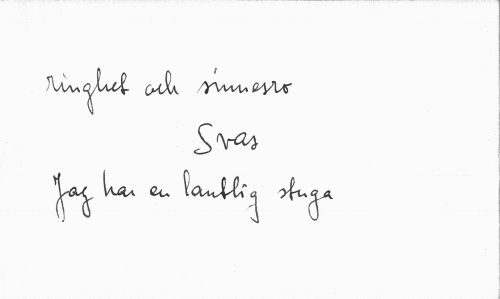 ringhet och sinnesro
Svas
Jag har en lantlig stuga